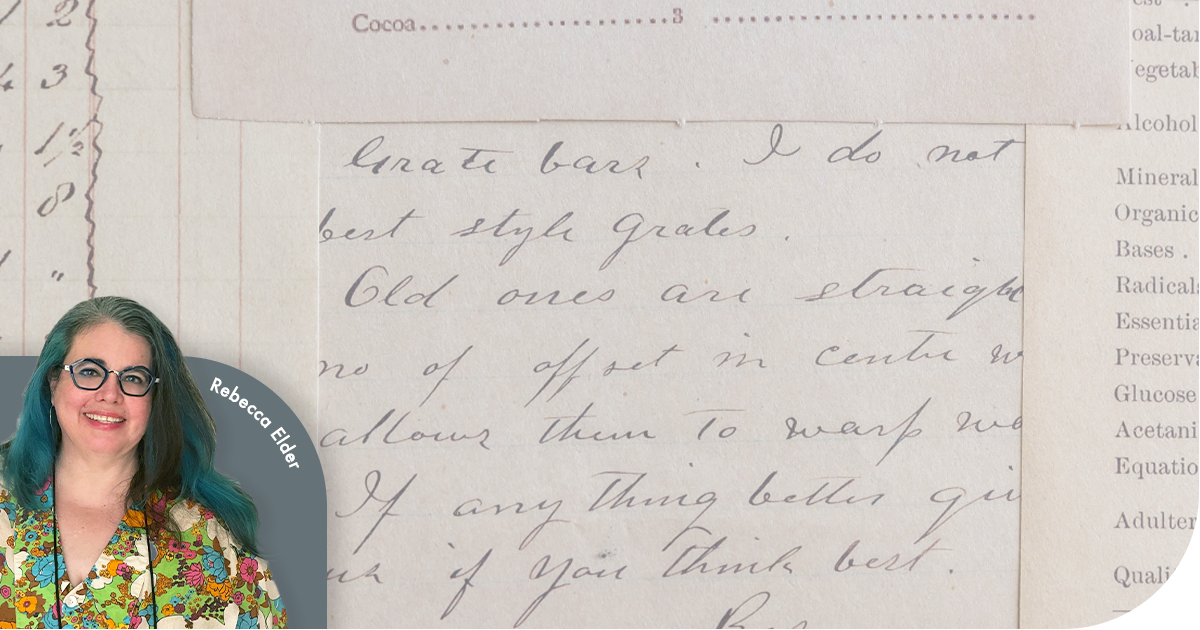 Cocoa..............................3 ........................................
2
3
1½
8
"
Grate bars. I do not
best style Grates.
Old ones are straight
no of offset in centre
allows them to warp
If any thing better
us if you think best.
Alcohol
Mineral
Organic
Bases .
Radicals
Essentia
Preserva
Glucose
Acetani
Equatio
Adulter
Quali
Rebecca Elder